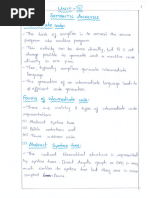 UNIT-
SEMANTIC ANALYSIS
Intermediate code:
→ The task of compiler is to convert the source
program into machine program.
→ This activity can be done directly, but it is not
always possible to generate such a machine code
directly in one pass.
→ Then, compilers typically generate intermediate
language
→ The generation of a intermediate language leads to
efficient code to generate code.
Forms of intermediate code:
→ There are mainly 3 types of intermediate code
representation.
(1) Abstract syntax tree
(2) Polish notation and
(3) Three address code.
(1) Abstract syntax tree:
The natural hierarchical structure is represented
by syntax tree. Direct Acyclic graph or DAG is very
much similar to syntax tree but they are in more
compact form